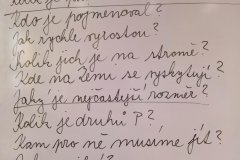 Kdo je pojmenoval?
Jak rychle vyrostou?
Kolik jich je na stromě?
Kde na Zemi se vyskytují?
Jaký je nejčastější rozměr?
Kolik je druhů P?
Kam pro ně musíme jít?